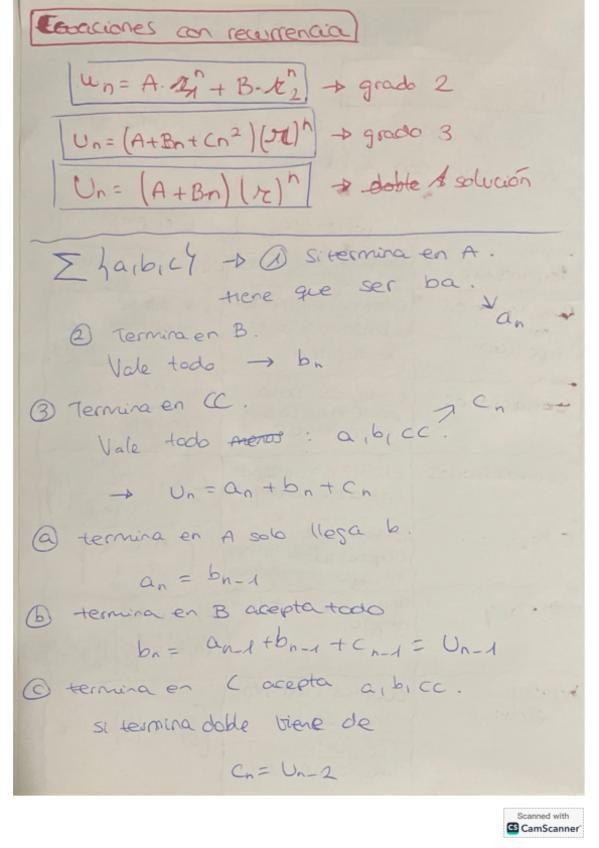 Ecuaciones con recurrencia
Un = A · r₁ⁿ + B · r₂ⁿ → grado 2
Un = (A+Bn+Cn²)(r)ⁿ → grado 3
Un = (A+Bn)(r)ⁿ → doble 1 solución
∑ {a,b,c} → ① Si termina en A.
tiene que ser ba.
↘ an
② Termina en B.
Vale todo → bn
③ Termina en CC. ↗ Cn
Vale todo menos : a, b, cc.
→ Un = an + bn + cn
ⓐ termina en A solo llega b.
an = bn-1
ⓑ termina en B acepta todo
bn = an-1 + bn-1 + cn-1 = Un-1
ⓒ termina en C acepta a, b, cc.
si termina doble viene de
Cn = Un-2
Scanned with
CS CamScanner